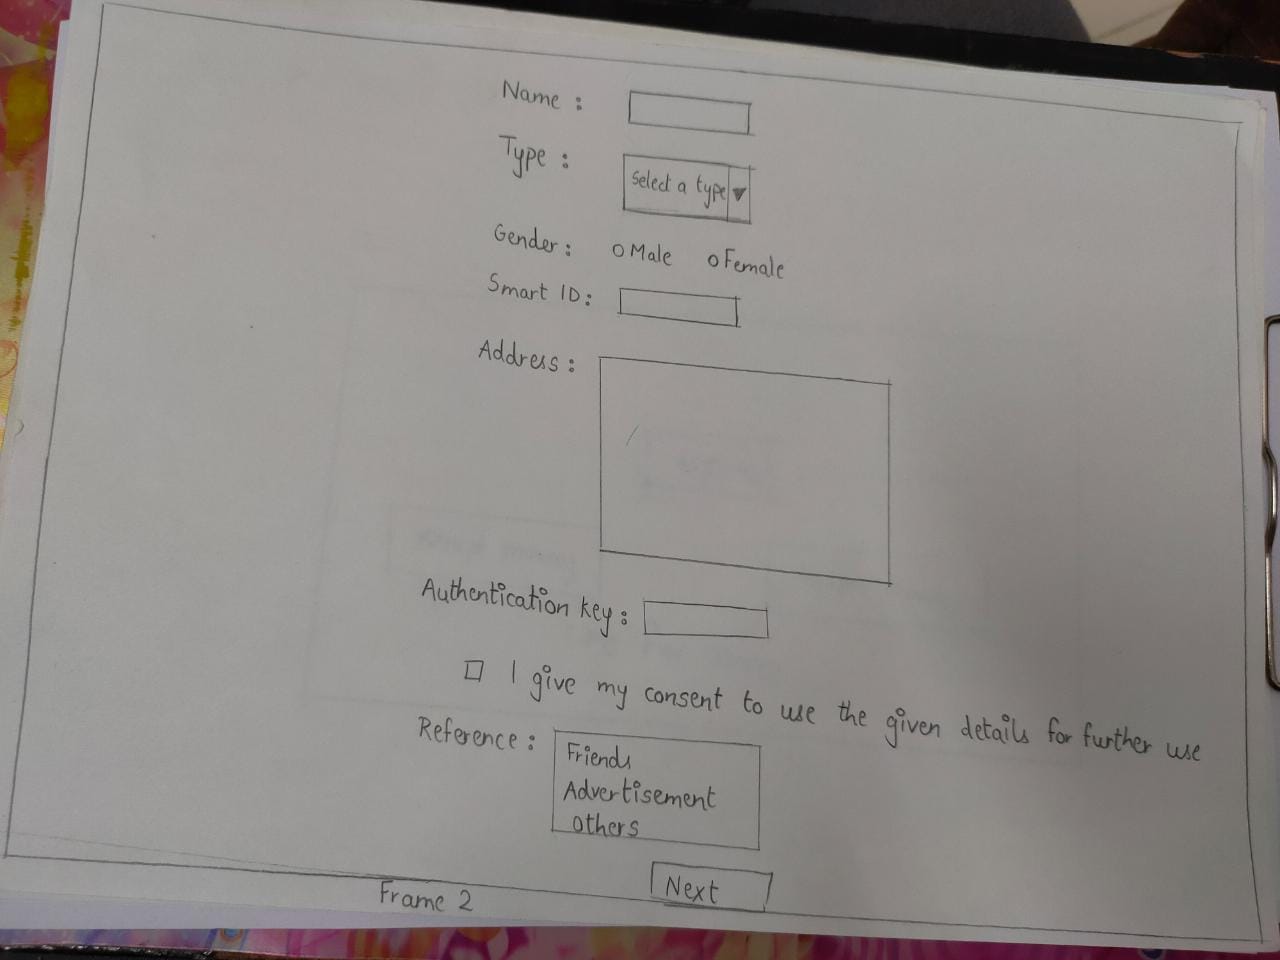 Name :
Type :
Select a type
Gender : Male Female
Smart ID :
Address :
Authentication key :
I give my consent to use the given details for further use
Reference :
Friends
Advertisement
others
Next
Frame 2